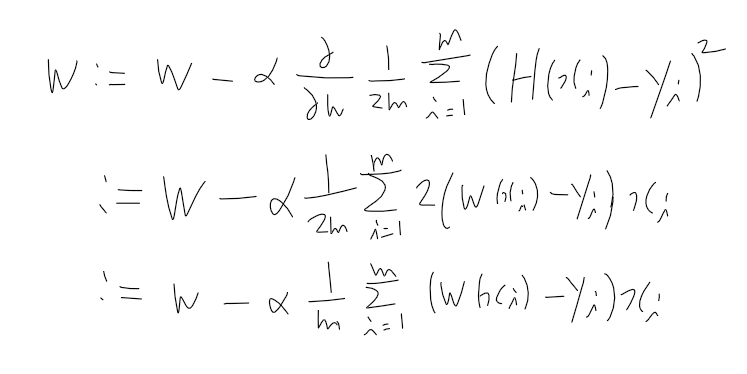 W := W - α ∂/∂W 1/2m ∑_{i=1}^{m} (H(x_i) - y_i)^2
:= W - α 1/2m ∑_{i=1}^{m} 2(W(x_i) - y_i) x_i
:= W - α 1/m ∑_{i=1}^{m} (W(x_i) - y_i) x_i